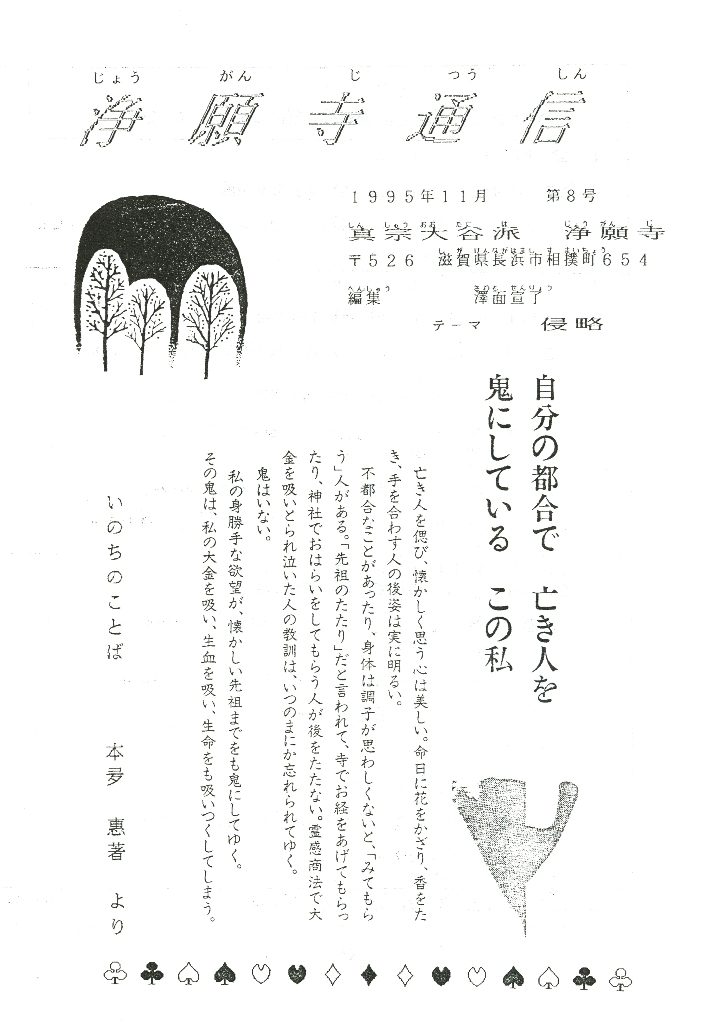 じょう がん じ つう しん
浄願寺通信
1995年11月 第8号
しん しゅう おお たに は じょう がん じ
真宗大谷派 浄願寺
し が けんながはまし すまいちょう
〒526 滋賀県長浜市相撲町654
へんしゅう
編集 澤面宣了
テーマ 侵略
自分の都合で 亡き人を
鬼にしている この私
亡き人を偲び、懐かしく思う心は美しい。命日に花をかざり、香をた
き、手を合わす人の後姿は実に明るい。
不都合なことがあったり、身体は調子が思わしくないと、「みてもら
う」人がある。「先祖のたたり」だと言われて、寺でお経をあげてもらっ
たり、神社でおはらいをしてもらう人が後をたたない。霊感商法で大
金を吸いとられ泣いた人の教訓は、いつのまにか忘れられてゆく。
鬼はいない。
私の身勝手な欲望が、懐かしい先祖までをも鬼にしてゆく。
その鬼は、私の大金を吸い、生血を吸い、生命をも吸いつくしてしまう。
いのちのことば 本夛 惠著 より